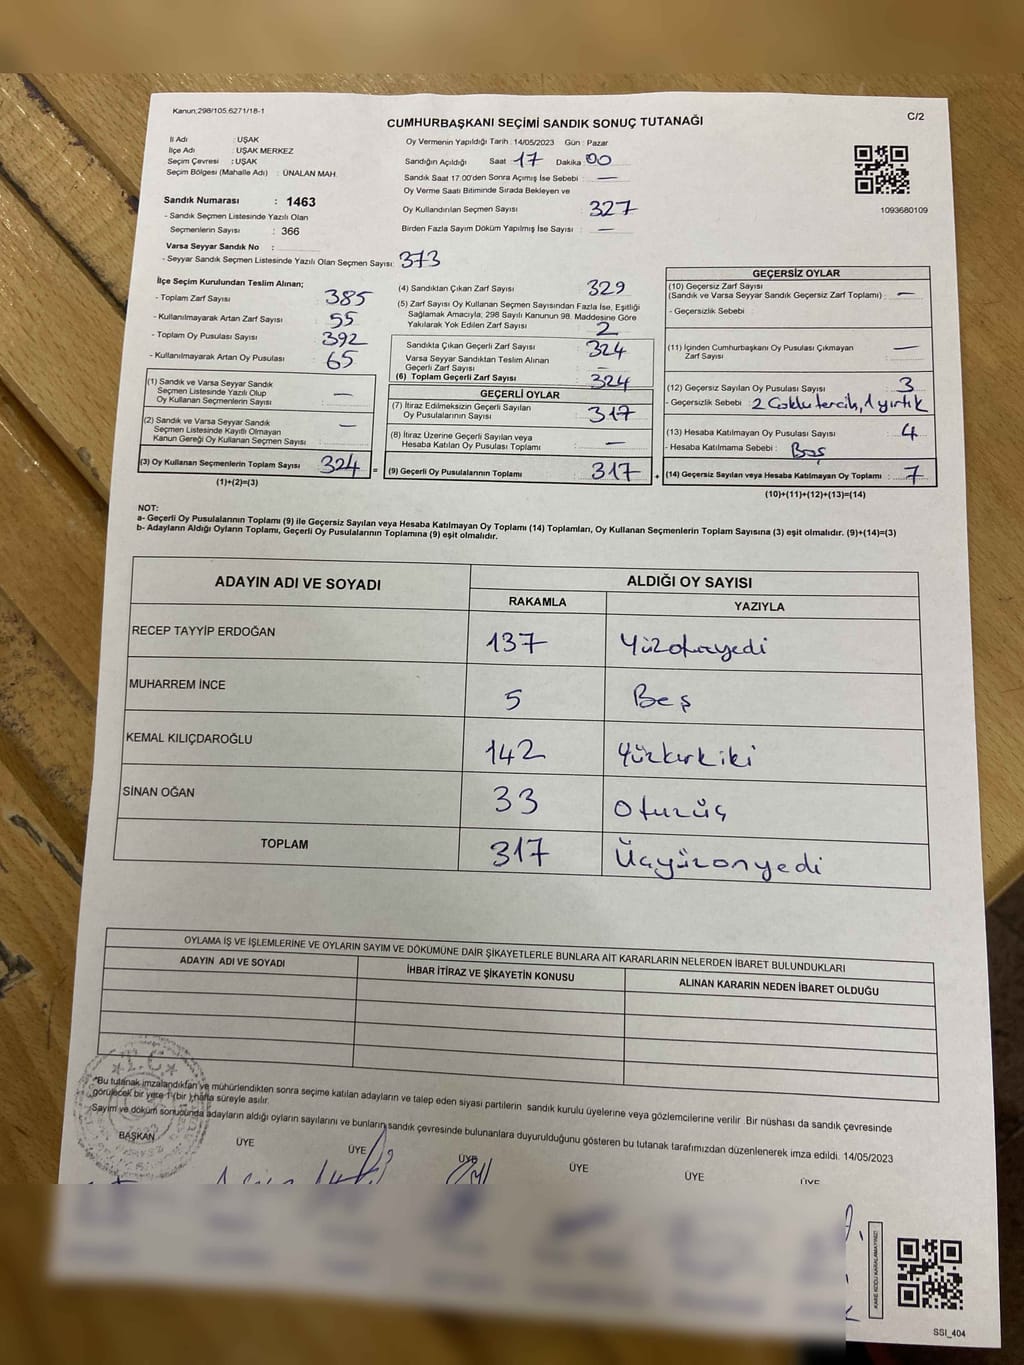 Kanun;298/105.6271/18-1
C/2
CUMHURBAŞKANI SEÇİMİ SANDIK SONUÇ TUTANAĞI
İl Adı : UŞAK
İlçe Adı : UŞAK MERKEZ
Seçim Çevresi : UŞAK
Seçim Bölgesi (Mahalle Adı) : ÜNALAN MAH.
Sandık Numarası : 1463
- Sandık Seçmen Listesinde Yazılı Olan
Seçmenlerin Sayısı : 366
Varsa Seyyar Sandık No :
- Seyyar Sandık Seçmen Listesinde Yazılı Olan Seçmen Sayısı: 373
Oy Vermenin Yapıldığı Tarih : 14/05/2023 Gün : Pazar
Sandığın Açıldığı Saat 17 Dakika 00
Sandık Saat 17:00'den Sonra Açımış İse Sebebi : —
Oy Verme Saati Bitiminde Sırada Bekleyen ve
Oy Kullandırılan Seçmen Sayısı : 327
Birden Fazla Sayım Döküm Yapılmış İse Sayısı : —
1093680109
İlçe Seçim Kurulundan Teslim Alınan;
- Toplam Zarf Sayısı : 385
- Kullanılmayarak Artan Zarf Sayısı : 55
- Toplam Oy Pusulası Sayısı : 392
- Kullanılmayarak Artan Oy Pusulası : 65
(1) Sandık ve Varsa Seyyar Sandık
Seçmen Listesinde Yazılı Olup
Oy Kullanan Seçmenlerin Sayısı : —
(2) Sandık ve Varsa Seyyar Sandık
Seçmen Listesinde Kayıtlı Olmayan
Kanun Gereği Oy Kullanan Seçmen Sayısı : —
(3) Oy Kullanan Seçmenlerin Toplam Sayısı : 324 =
(1)+(2)=(3)
(4) Sandıktan Çıkan Zarf Sayısı : 329
(5) Zarf Sayısı Oy Kullanan Seçmen Sayısından Fazla İse, Eşitliği
Sağlamak Amacıyla, 298 Sayılı Kanunun 98. Maddesine Göre
Yakılarak Yok Edilen Zarf Sayısı : 2
Sandıkta Çıkan Geçerli Zarf Sayısı : 324
Varsa Seyyar Sandıktan Teslim Alınan
Geçerli Zarf Sayısı : —
(6) Toplam Geçerli Zarf Sayısı : 324
GEÇERLİ OYLAR
(7) İtiraz Edilmeksizin Geçerli Sayılan
Oy Pusulalarının Sayısı : 317
(8) İtiraz Üzerine Geçerli Sayılan veya
Hesaba Katılan Oy Pusulası Toplamı : —
(9) Geçerli Oy Pusulalarının Toplamı : 317 +
GEÇERSİZ OYLAR
(10) Geçersiz Zarf Sayısı
(Sandık ve Varsa Seyyar Sandık Geçersiz Zarf Toplamı) : —
- Geçersizlik Sebebi :
(11) İçinden Cumhurbaşkanı Oy Pusulası Çıkmayan
Zarf Sayısı : —
(12) Geçersiz Sayılan Oy Pusulası Sayısı : 3
- Geçersizlik Sebebi : 2 Çoklu tercih, 1 yırtık
(13) Hesaba Katılmayan Oy Pusulası Sayısı : 4
- Hesaba Katılmama Sebebi : Boş
(14) Geçersiz Sayılan veya Hesaba Katılmayan Oy Toplamı : 7
(10)+(11)+(12)+(13)=(14)
NOT:
a- Geçerli Oy Pusulalarının Toplamı (9) ile Geçersiz Sayılan veya Hesaba Katılmayan Oy Toplamı (14) Toplamları, Oy Kullanan Seçmenlerin Toplam Sayısına (3) eşit olmalıdır. (9)+(14)=(3)
b- Adayların Aldığı Oyların Toplamı, Geçerli Oy Pusulalarının Toplamına (9) eşit olmalıdır.
ADAYIN ADI VE SOYADI ALDIĞI OY SAYISI
RAKAMLA YAZIYLA
RECEP TAYYİP ERDOĞAN 137 Yüzotuzyedi
MUHARREM İNCE 5 Beş
KEMAL KILIÇDAROĞLU 142 Yüzkırkiki
SİNAN OĞAN 33 Otuzüç
TOPLAM 317 Üçyüzonyedi
OYLAMA İŞ VE İŞLEMLERİNE VE OYLARIN SAYIM VE DÖKÜMÜNE DAİR ŞİKAYETLERLE BUNLARA AİT KARARLARIN NELERDEN İBARET BULUNDUKLARI
ADAYIN ADI VE SOYADI İHBAR İTİRAZ VE ŞİKAYETİN KONUSU ALINAN KARARIN NEDEN İBARET OLDUĞU
T.C.
*Bu tutanak imzalandıktan ve mühürlendikten sonra seçime katılan adayların ve talep eden siyasi partilerin sandık kurulu üyelerine veya gözlemcilerine verilir. Bir nüshası da sandık çevresinde
görülecek bir yere 1 (bir ) hafta süreyle asılır.
Sayım ve döküm sonucunda adayların aldığı oyların sayılarını ve bunların sandık çevresinde bulunanlara duyurulduğunu gösteren bu tutanak tarafımızdan düzenlenerek imza edildi. 14/05/2023
BAŞKAN ÜYE ÜYE ÜYE ÜYE ÜYE ÜYE
KARE KODU KARALAMAYINIZ!
SSI_404